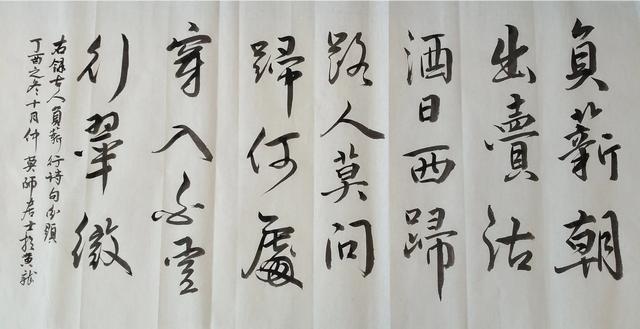 負薪朝
出賣沽
酒日西歸
路人莫問
歸何處
穿入白雲
行翠微
右錄古人負薪行詩句為題
丁酉之冬十月仲莫師居士於黃龍